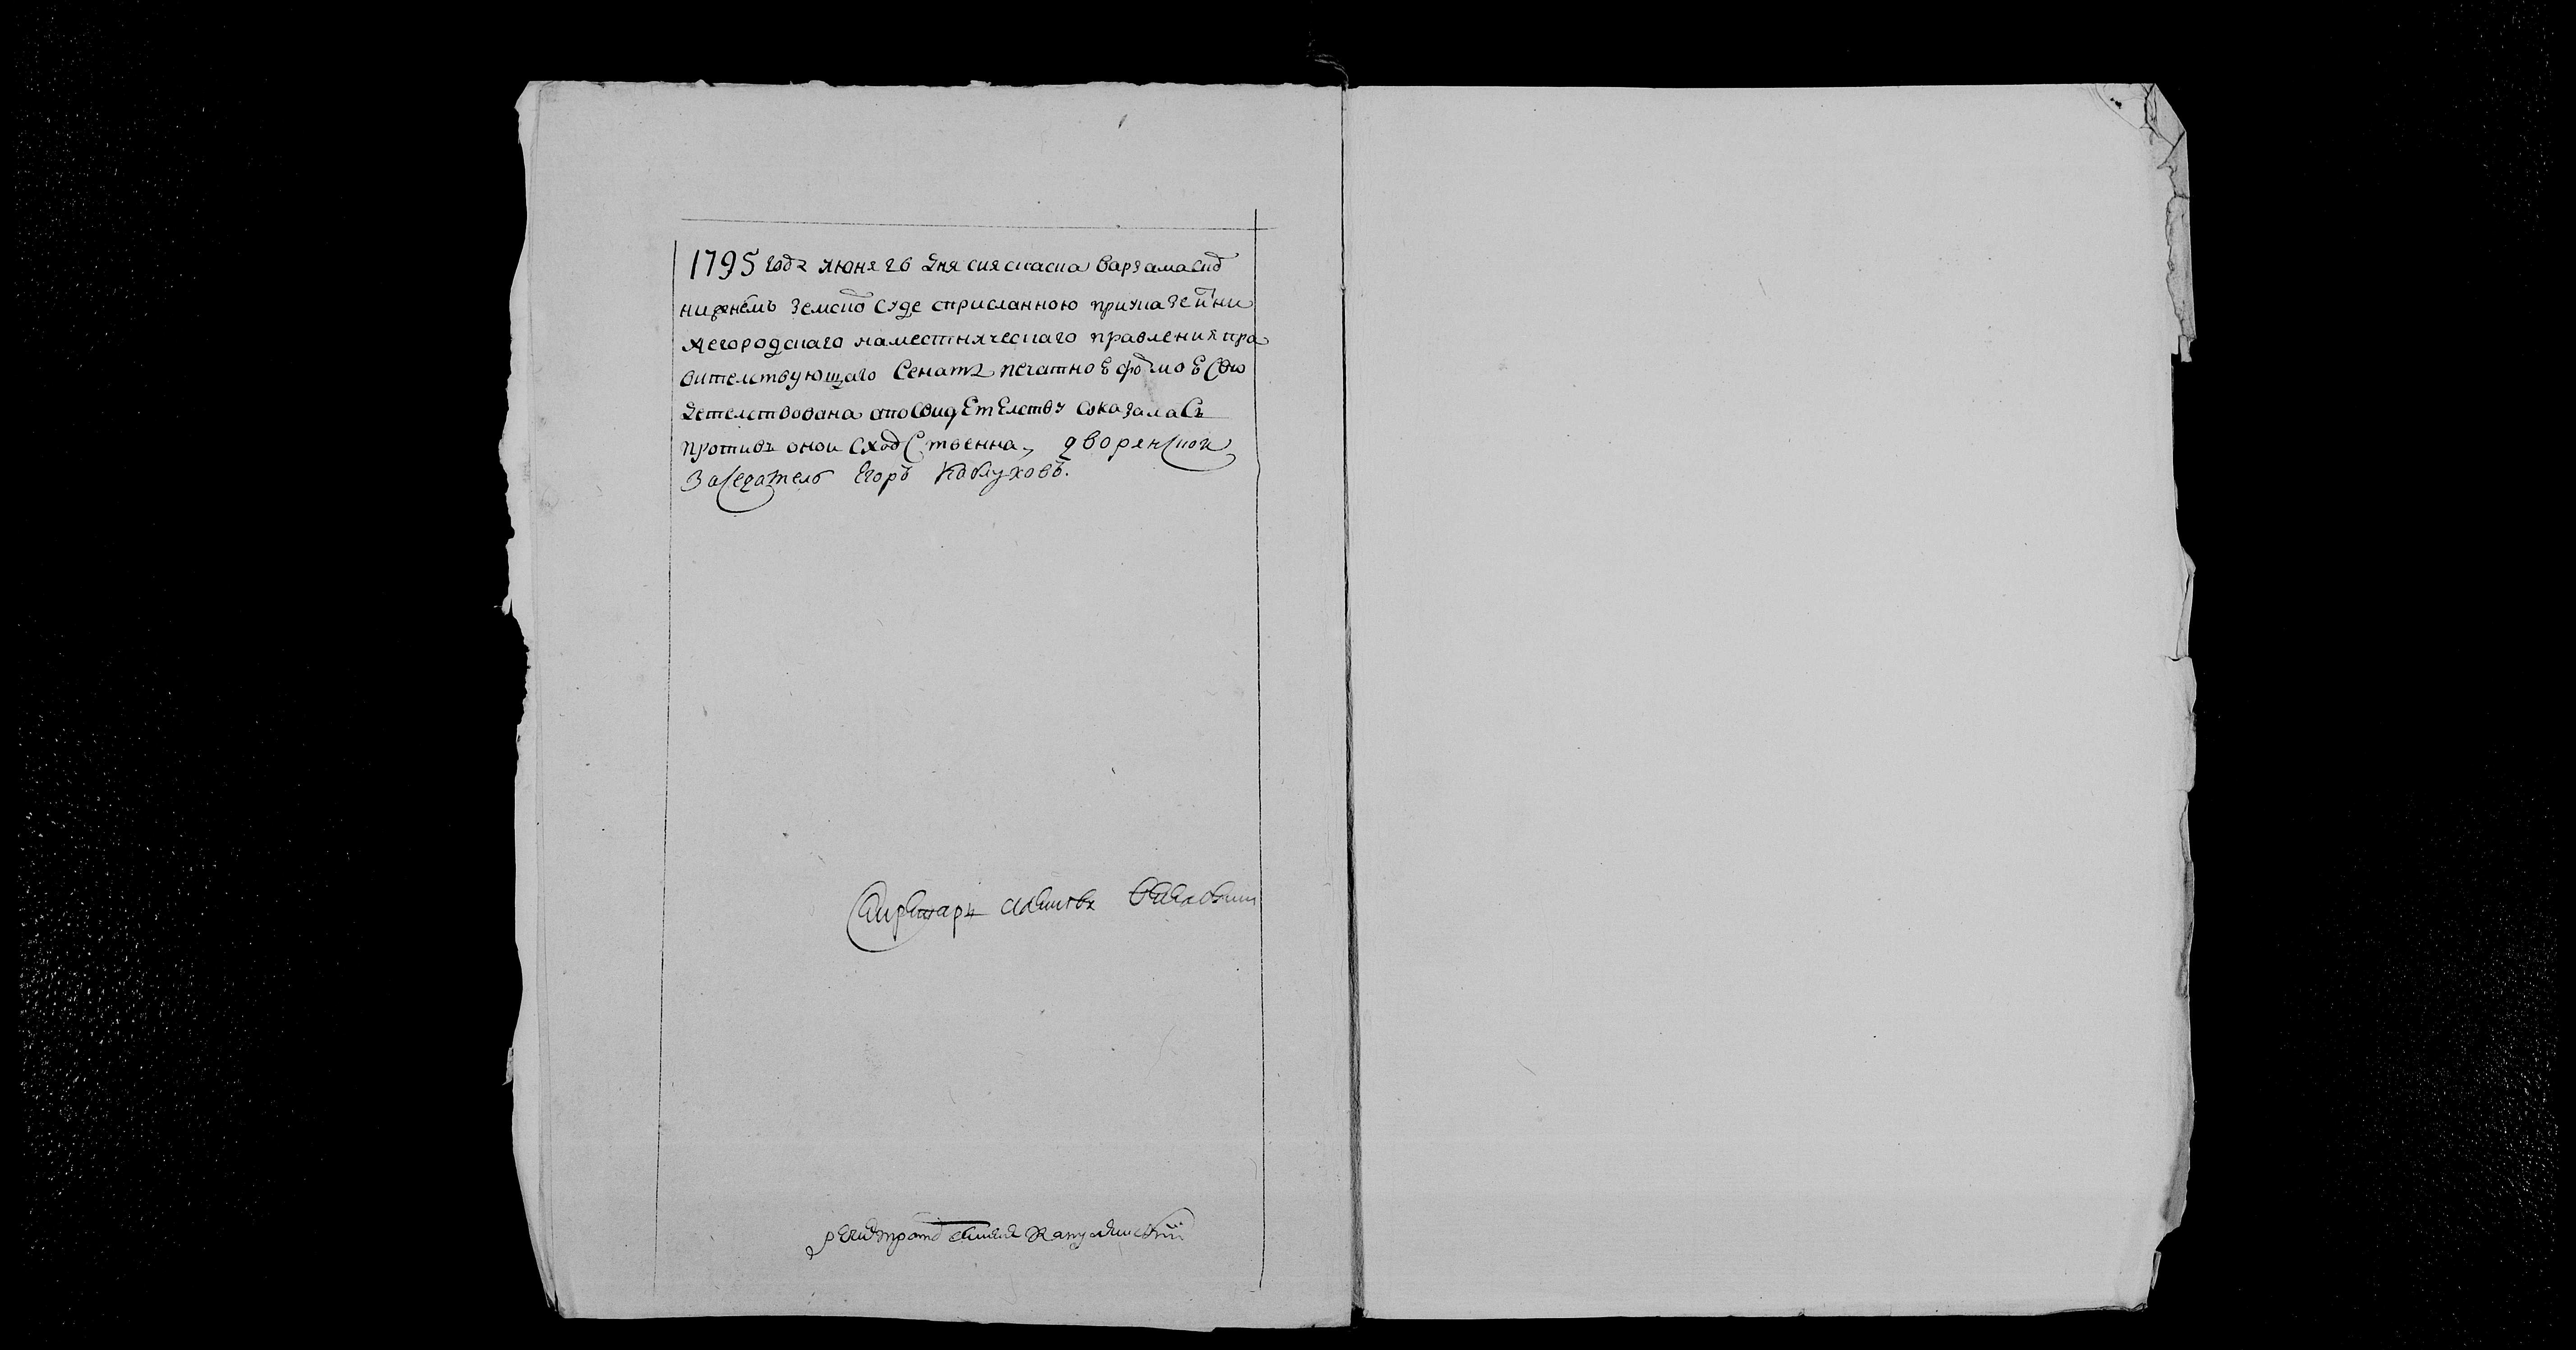 1795 года июня 26 дня сия скаска варзамаском
нижнемъ земском суде сприсланною приуказе изни
жегородскаго наместническаго правления пра
вителствующаго Сената печатное формое сви
детелствована апосвидетелству оказаласъ
противъ онои сходственна, дворянской
Заседатель Егоръ Каблуховъ.
Секретарь
регистраторъ